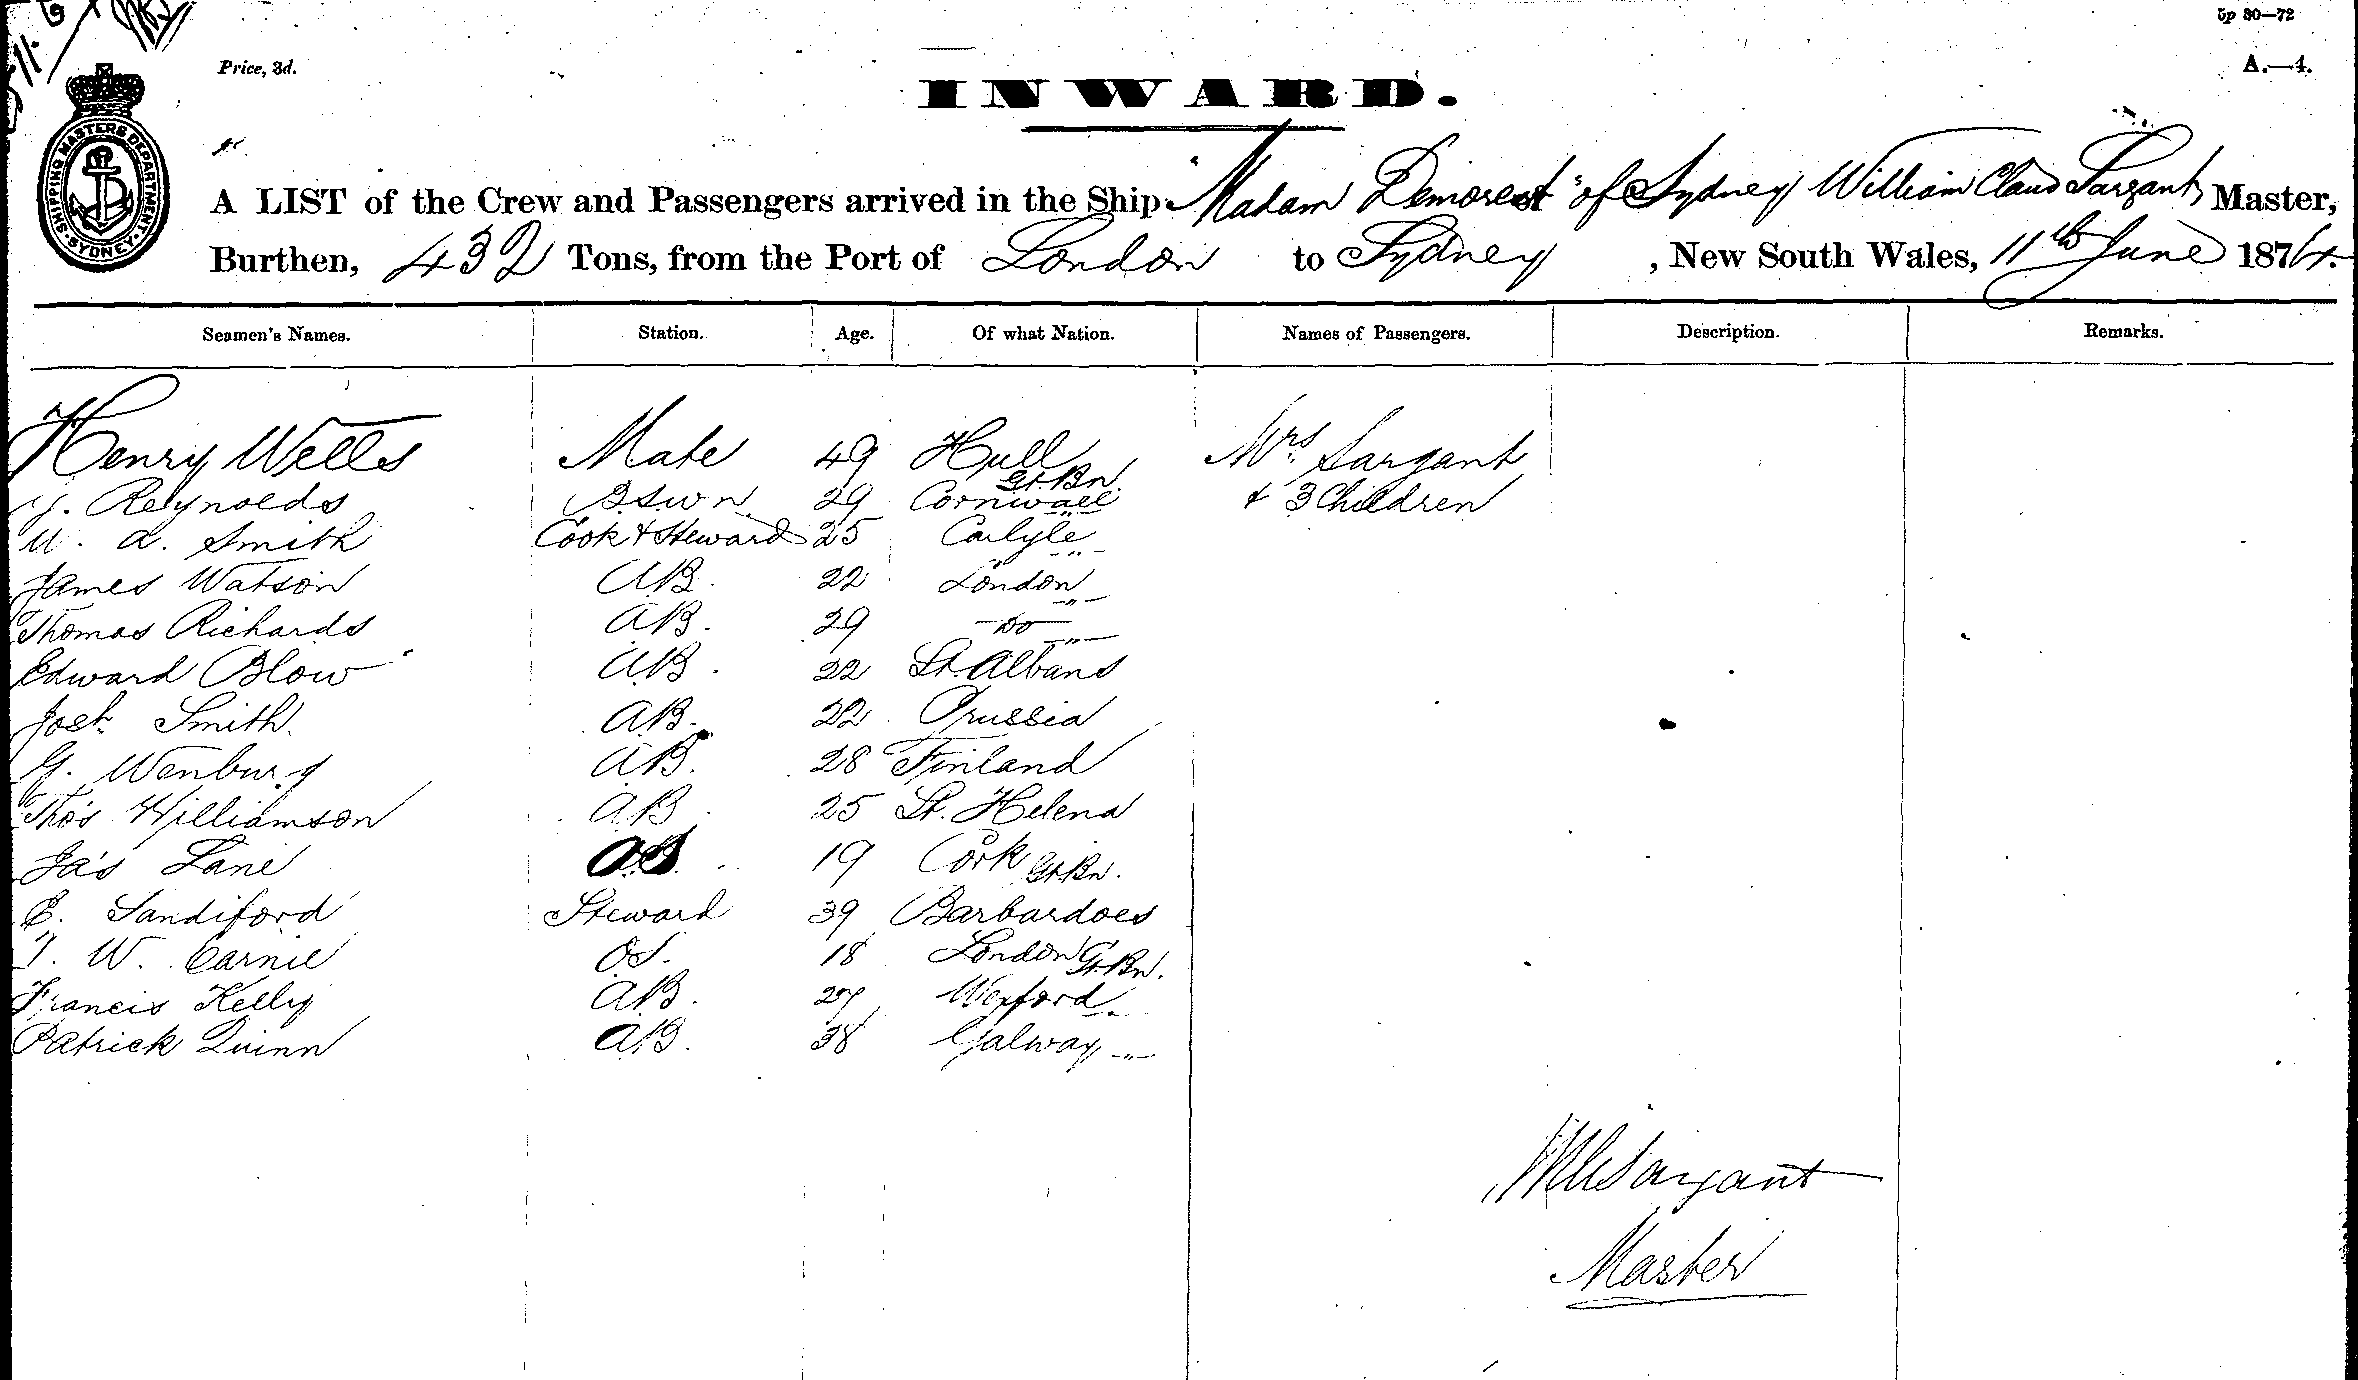 5p 30—72
Price, 3d.
A.—4.
INWARD.
SHIPPING MASTERS DEPARTMENT. SYDNEY.
A LIST of the Crew and Passengers arrived in the Ship "Madam Demorest" of Sydney William Claud Sargant, Master,
Burthen, 432 Tons, from the Port of London to Sydney, New South Wales, 11th June 1874.
Seamen's Names. Station. Age. Of what Nation. Names of Passengers. Description. Remarks.
Henry Wells Mate 49 Hull Gt. Bn. Mrs. Sargant
J. Reynolds Bswn 29 Cornwall " + 3 Children
W. A. Smith Cook + Steward 25 Carlyle -"-
James Watson AB. 22 London -"-
Thomas Richards AB. 29 -Do- -"-
Edward Blow AB. 22 St. Albans
Josh. Smith. AB. 22 Prussia
G. Wenburg AB. 28 Finland
Tho's Williamson AB 25 St. Helena
Ja's Lane 19 Cork Gt. Bn.
E. Sandiford Steward 39 Barbardoes
T. W. Carnie OS. 18 London Gt. Bn.
Francis Kelly AB. 27 Wexford "
Patrick Quinn AB. 38 Galway -"-
WC Sargant
Master